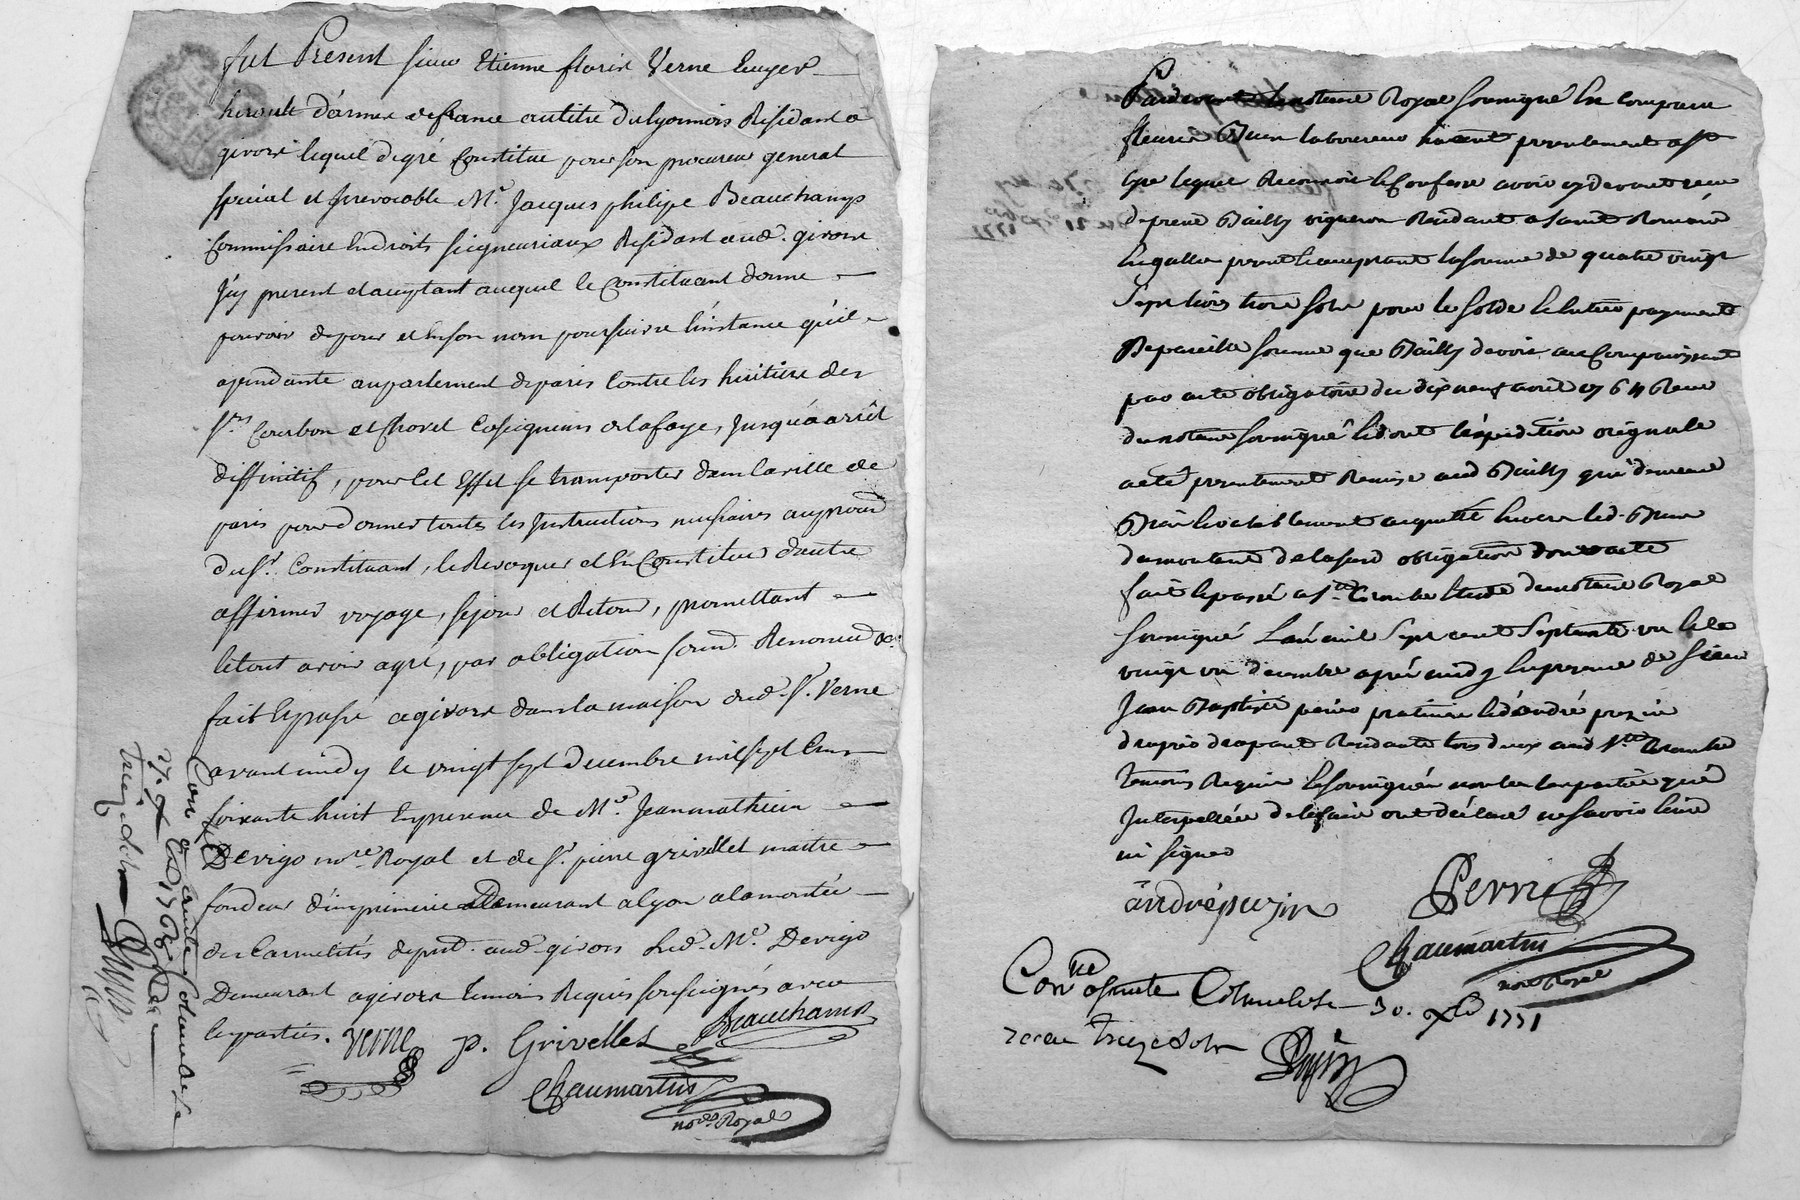 fut Present sieur Etienne floris Verne Ecuyer
herault d'armes de france au titre du lyonnois Residant a
givors lequel de gré Constitue pour son procureur general
special et Irrevocable Me. Jacques philipe Beauchamps
Commissaire En droits seigneuriaux Residant aud. givors
Icy present et acceptant auquel le Constituant donne
pouvoir de pour et En son nom poursuivre l'instance qu'il
a pendante au parlement de paris Contre les heritiers des
Srs Courbon et Chovet Coseigneurs de la faye, Jusqu'a arrêt
deffinitif, pour Cet Effet se transporter dans la ville de
paris pour donner toutes les Instructions necessaires au procès
dud Sr. Constituant, le Revoquer et En Constituer d'autre
affirmer voyage, séjour et Retour, promettant
le tout avoir agré, par obligation soumd. Renonced &c.
fait Et passé a givors dans la maison dud. Sr. Verne
avant midy le vingt sept decembre mil sept Cens
soixante huit En presence de Me. Jean mathieu
Devigo nore Royal et de Sr. pierre grivellet maitre
fondeur d'imprimerie Demeurant a lyon a la montée
des Carmelites de pnt. aud. givors Led. Me. Devigo
Demeurant a givors temoins Requis soussignés avec
les parties. verne P. Grivellet Beauchamps
Chaumartin
nore. Royal
Con. a sainte Colombe le
27. Xbre 1768
treize sols
Par devant le notaire Royal soussigné En Comparu
fleurie laboureur presentement a Ste
lequel Reconnoit Et Confesse avoir cy devant receu
de pierre Bailly vigneron Residant a saint Romain
En gallier present Et acceptant la somme de quatre vingt
Sept livres treize sols pour le solde Et Entier payement
De pareille somme que Bailly devoit au Comparoissant
par acte obligatoire du dix neuf avril 1764 Receu
du notaire soussigné Et dont l'expedition originale
a été presentement Remise aud Bailly qui demeure
Bien Et valablement acquitté Envers led.
du montant de la susd obligation dont acte
fait Et passé a Ste Colombe Etude du notaire Royal
soussigné L'an mil Sept cent Septante un Et le
vingt un decembre après midy En presence de Sieur
Jean Baptiste perier praticien Et d'andré puzin
drapier drapant Residants tous deux aud Ste Colombe
temoins Requis Et soussignés non les parties qui
Interpellées de le faire ont déclaré ne savoir écrire
ni signer
andré puzin Perier
Chaumartin
nore Royal
Conlle a sainte Colombe le 30. Xbre 1771
recu treize sols